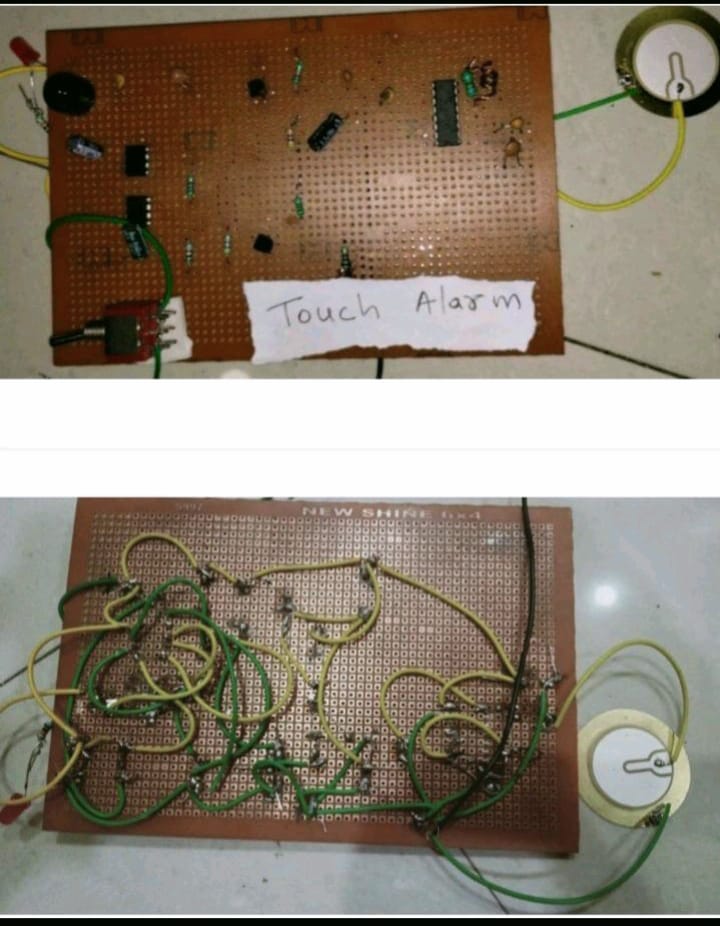 Touch Alarm
NEW SHINE 6x4